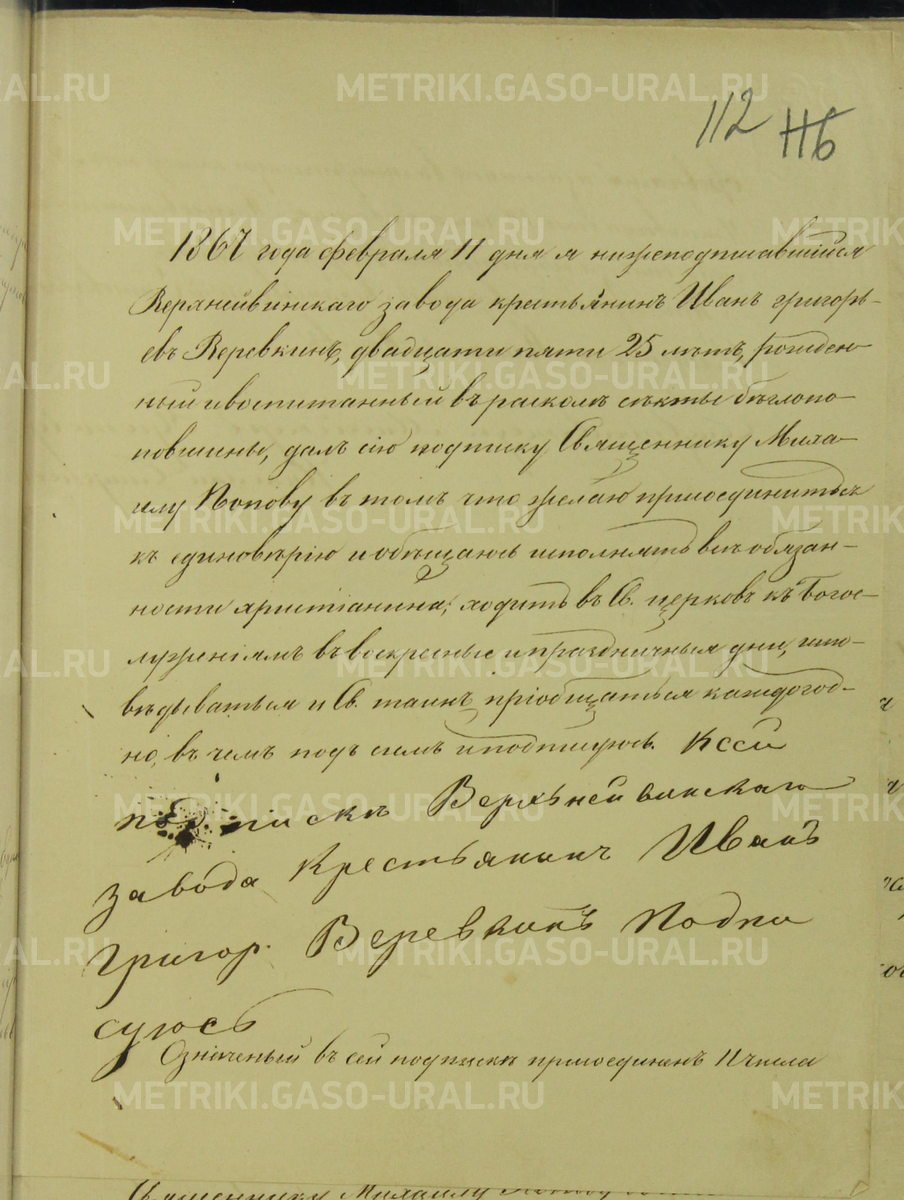 112 116
1867 года февраля 11 дня я нижеподписавшійся
Верхнейвинскаго завода крестьянинъ Иванъ Григорь-
евъ Веревкинъ, двадцати пяти 25 лѣтъ, рожден-
ный и воспитанный въ расколѣ секты бѣглопо-
повщины, далъ сію подписку Священнику Миха-
илу Попову въ томъ что желаю присоединиться
къ единовѣрію и обѣщаюсь исполнять всѣ обязан-
ности христіанина; ходить въ Св. церковь къ Богос-
луженіямъ въ воскресные и праздничныя дни, испо-
вѣдываться и Св. таинъ пріобщаться каждогод-
но, въ чемъ подъ симъ и подпишусь. К сей
подпискѣ Верхнейвинскаго
завода Крестьянинъ Иванъ
Григор. Веревкинъ Подпи
суюсь
Означеный въ сей подпискѣ присоединенъ 11 числа
Священнику Михаилу
METRIKI.GASO-URAL.RU